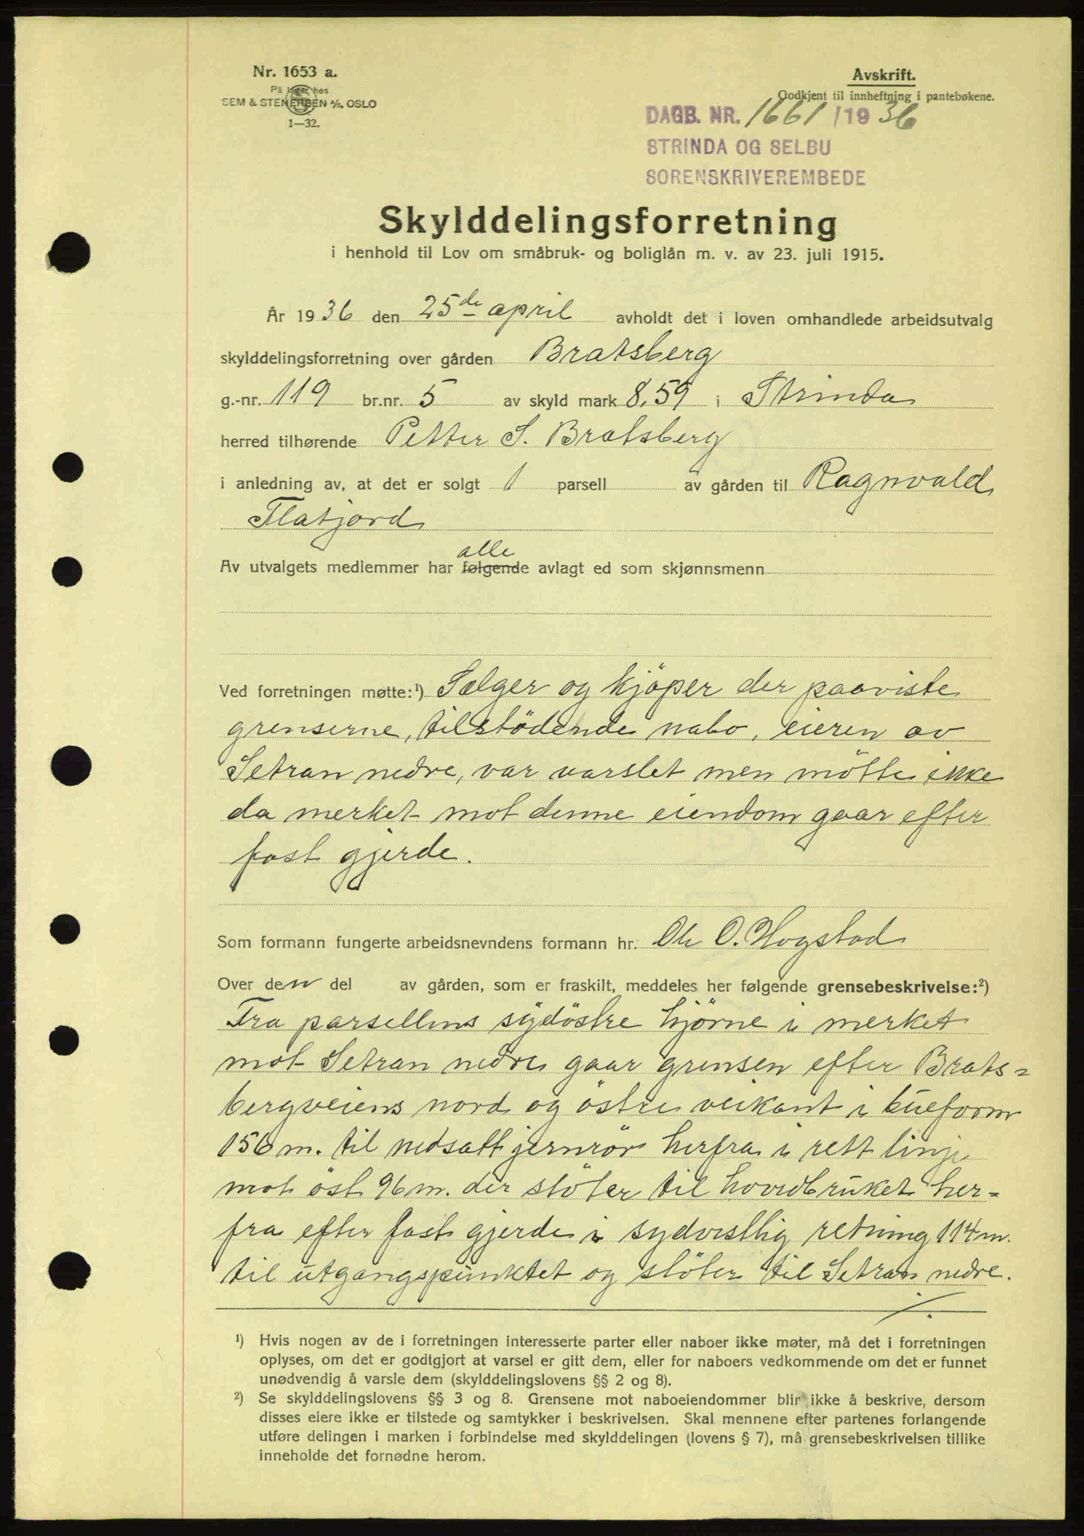 Nr. 1653 a.
På lager hos
SEM & STENERSEN A/S, OSLO
1—32.
Avskrift.
Godkjent til innheftning i pantebøkene.
DAGB. NR. 1661/1936
STRINDA OG SELBU
SORENSKRIVEREMBEDE
Skylddelingsforretning
i henhold til Lov om småbruk- og boliglån m. v. av 23. juli 1915.
År 1936 den 25de april avholdt det i loven omhandlede arbeidsutvalg
skylddelingsforretning over gården Bratsberg
g.-nr. 119 br.nr. 5 av skyld mark 8,59 i Strinda
herred tilhørende Petter S. Bratsberg
i anledning av, at det er solgt 1 parsell av gården til Ragnvald
Flatjord
alle
Av utvalgets medlemmer har følgende avlagt ed som skjønnsmenn
Ved forretningen møtte:¹) Sælger og kjöper der paaviste
grenserne, tilstödende nabo, eieren av
Setran nedre, var varslet men mötte ikke
da merket mot denne eiendom gaar efter
fast gjerde.
Som formann fungerte arbeidsnevndens formann hr. Ole O. Hogstad
Over den del av gården, som er fraskilt, meddeles her følgende grensebeskrivelse:²)
Fra parsellens sydöstre hjörne i merket
mot Setran nedre gaar grensen efter Brats=
bergveiens nord og östre veikant i bueform
156 m. til nedsatt jernrör herfra i rett linje
mot öst 96 m. der stöter til hovedbruket her=
fra efter fast gjerde i sydvestlig retning 114 m.
til utgangspunktet og stöter til Setran nedre.
./.
¹) Hvis nogen av de i forretningen interesserte parter eller naboer ikke møter, må det i forretningen
oplyses, om det er godtgjort at varsel er gitt dem, eller for naboers vedkommende om det er funnet
unødvendig å varsle dem (skylddelingslovens §§ 2 og 8).
²) Se skylddelingslovens §§ 3 og 8. Grensene mot naboeiendommer blir ikke å beskrive, dersom
disses eiere ikke er tilstede og samtykker i beskrivelsen. Skal mennene efter partenes forlangende
utføre delingen i marken i forbindelse med skylddelingen (lovens § 7), må grensebeskrivelsen tillike
inneholde det fornødne herom.